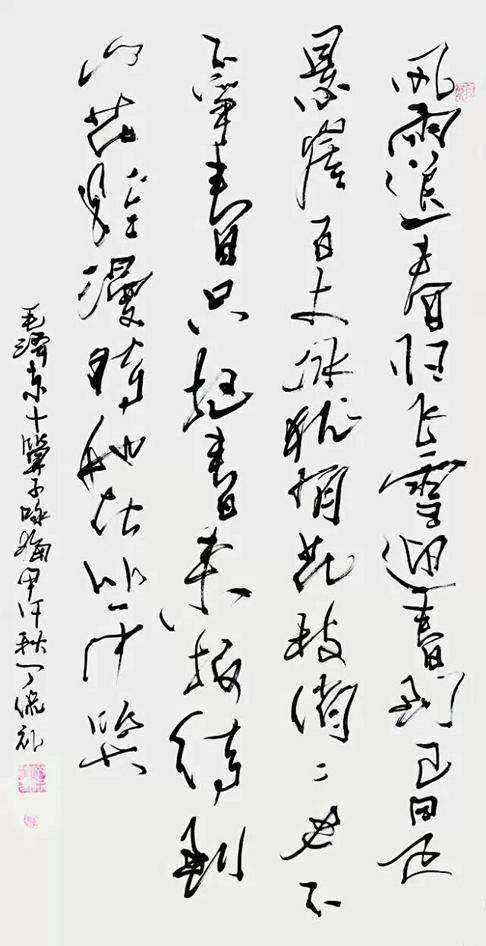 风雨送春归飞雪迎春到已是
悬崖百丈冰犹有花枝俏〻也不
争春只把春来报待到
山花烂漫时她在丛中笑
毛泽东卜算子咏梅甲午秋